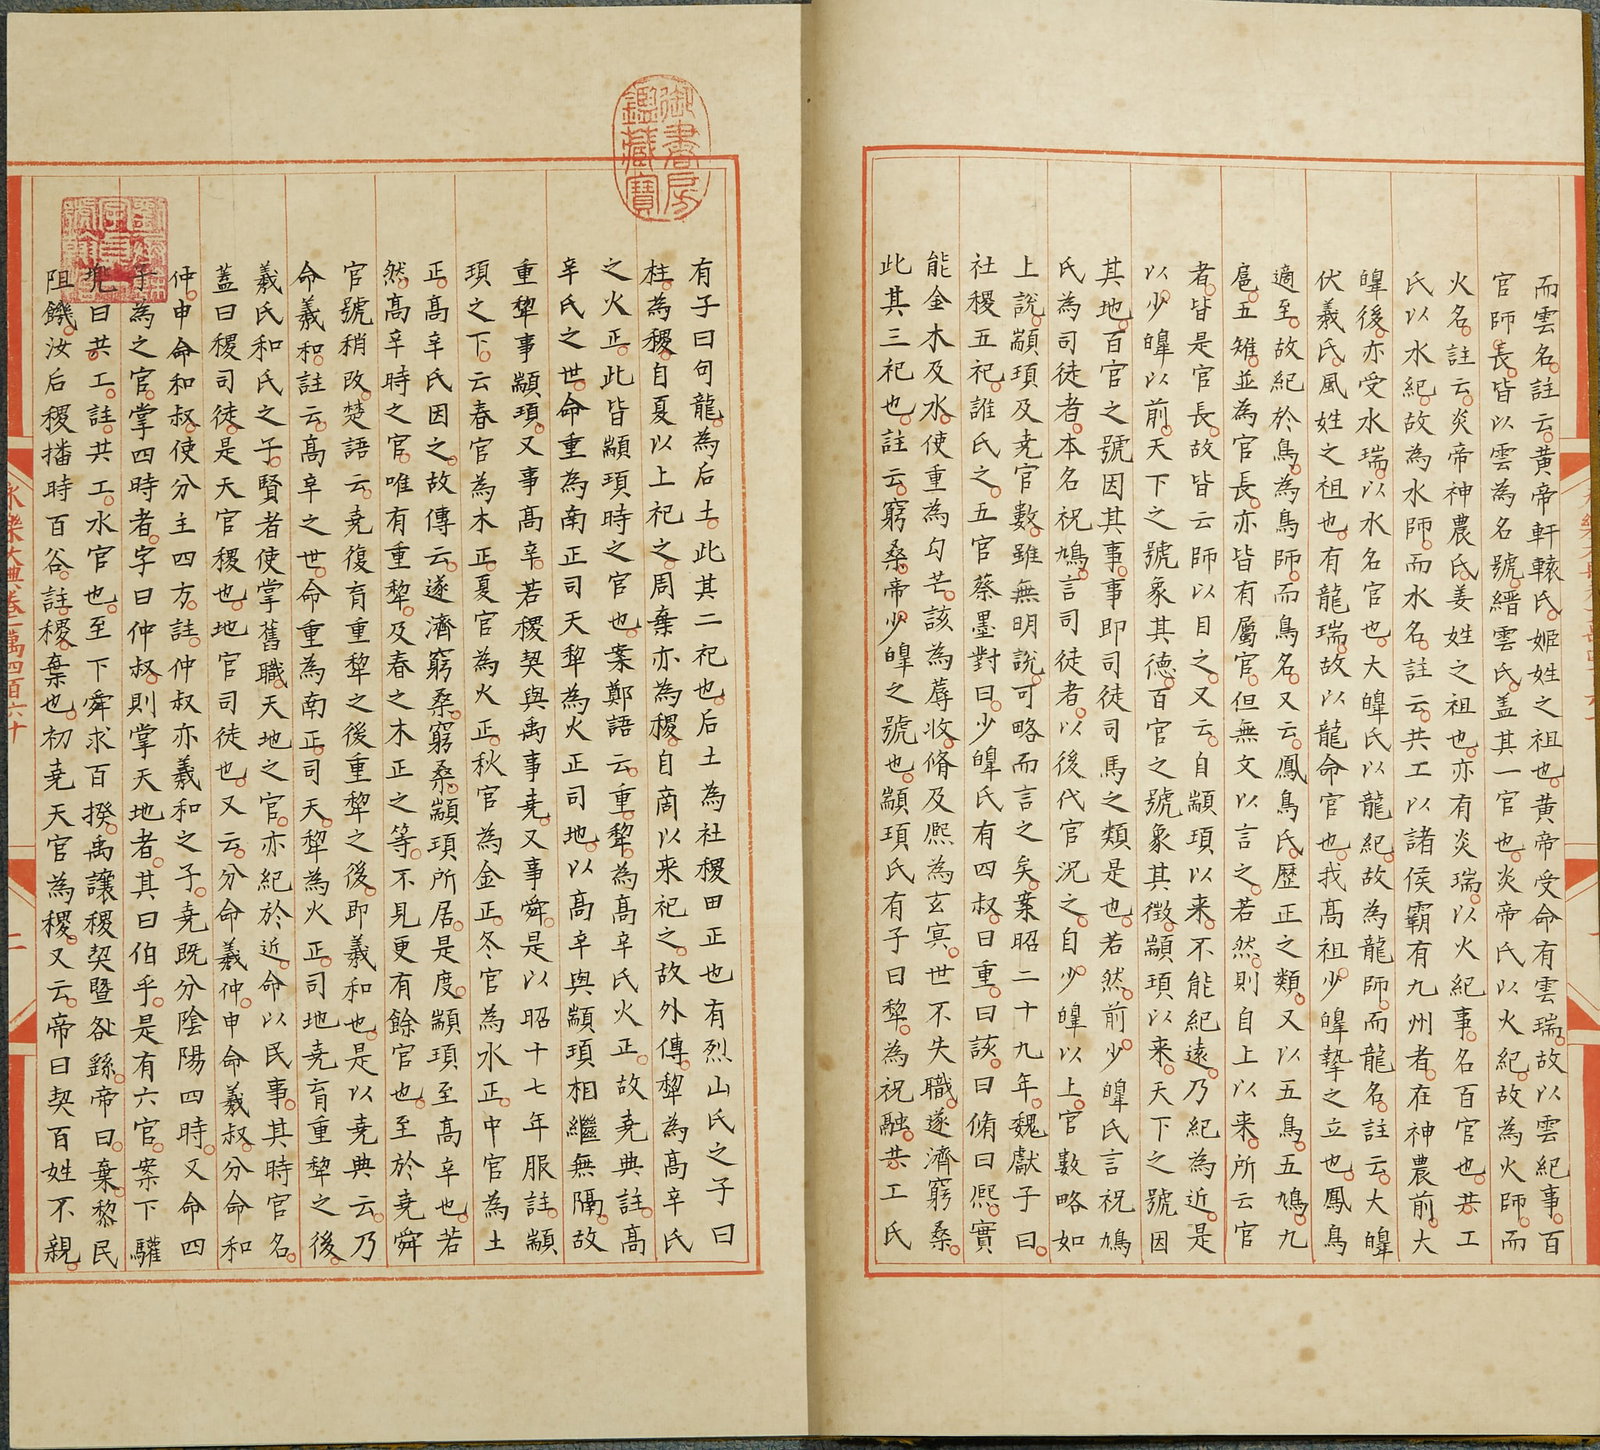 而雲名註云黃帝軒轅氏姬姓之祖也黃帝受命有雲瑞故以雲紀事百
官師長皆以雲為名號縉雲氏盖其一官也炎帝氏以火紀故為火師而
火名註云炎帝神農氏姜姓之祖也亦有炎瑞以火紀事名百官也共工
氏以水紀故為水師而水名註云共工以諸侯霸有九州者在神農前大
皥後亦受水瑞以水名官也大皥氏以龍紀故為龍師而龍名註云大皥
伏羲氏風姓之祖也有龍瑞故以龍命官也我髙祖少皥摯之立也鳳鳥
適至故紀於鳥為鳥師而鳥名又云鳳鳥氏歷正之類又以五鳥五鳩九
扈五雉並為官長亦皆有屬官但無文以言之若然則自上以来所云官
者皆是官長故皆云師以目之又云自顓頊以来不能紀逺乃紀為近是
以少皥以前天下之號象其德百官之號象其徵顓頊以来天下之號因
其地百官之號因其事事即司徒司馬之類是也若然前少皥氏言祝鳩
氏為司徒者本名祝鳩言司徒者以後代官況之自少皥以上官數略如
上說顓頊及尭官數雖無明說可略而言之矣案昭二十九年魏獻子曰
社稷五祀誰氏之五官蔡墨對曰少皥氏有四叔曰重曰該曰脩曰熈實
能金木及水使重為勾芒該為蓐收脩及熈為玄冥世不失職遂濟窮桑
此其三祀也註云窮桑帝少皥之號也顓頊氏有子曰犂為祝融共工氏
有子曰句龍為后土此其二祀也后土為社稷田正也有烈山氏之子曰
柱為稷自夏以上祀之周棄亦為稷自商以来祀之故外傳犂為髙辛氏
之火正此皆顓頊時之官也案鄭語云重犂為髙辛氏火正故尭典註髙
辛氏之世命重為南正司天犂為火正司地以髙辛與顓頊相繼無隔故
重犂事顓頊又事髙辛若稷契與禹事尭又事舜是以昭十七年服註顓
頊之下云春官為木正夏官為火正秋官為金正冬官為水正中官為土
正髙辛氏因之故傳云遂濟窮桑窮桑顓頊所居是度顓頊至髙辛也若
然髙辛時之官唯有重犂及春之木正之等不見更有餘官也至於尭舜
官號稍改楚語云尭復育重犂之後重犂之後即羲和也是以尭典云乃
命羲和註云髙辛之世命重為南正司天犂為火正司地尭育重犂之後
羲氏和氏之子賢者使掌舊職天地之官亦紀於近命以民事其時官名
蓋曰稷司徒是天官稷也地官司徒也又云分命羲仲申命羲叔分命和
仲申命和叔使分主四方註仲叔亦羲和之子尭既分陰陽四時又命四
子為之官掌四時者字曰仲叔則掌天地者其曰伯乎是有六官案下驩
兠曰共工註共工水官也至下舜求百揆禹讓稷契暨咎繇帝曰棄黎民
阻饑汝后稷播時百谷註稷棄也初尭天官為稷又云帝曰契百姓不親
御書房鑑藏寶
永樂大典卷一萬四百六十
二